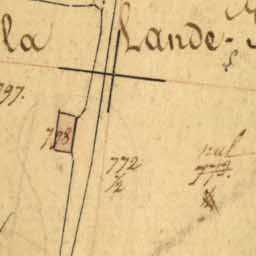 la Lande-
797.
798
772
1/2
nul